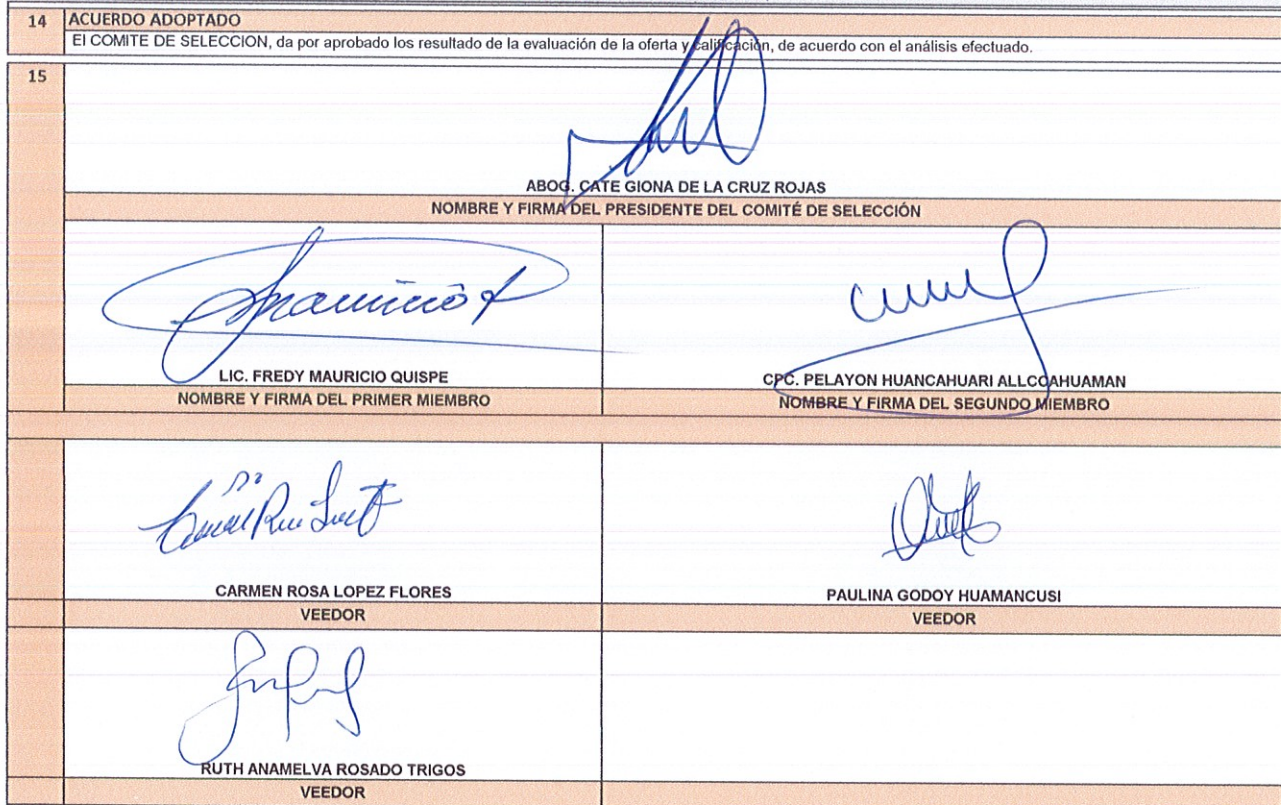 14 ACUERDO ADOPTADO
El COMITE DE SELECCION, da por aprobado los resultado de la evaluación de la oferta y calificación, de acuerdo con el análisis efectuado.
15
ABOG. CATE GIONA DE LA CRUZ ROJAS
NOMBRE Y FIRMA DEL PRESIDENTE DEL COMITÉ DE SELECCIÓN
LIC. FREDY MAURICIO QUISPE
NOMBRE Y FIRMA DEL PRIMER MIEMBRO
CPC. PELAYON HUANCAHUARI ALLCCAHUAMAN
NOMBRE Y FIRMA DEL SEGUNDO MIEMBRO
CARMEN ROSA LOPEZ FLORES
VEEDOR
PAULINA GODOY HUAMANCUSI
VEEDOR
RUTH ANAMELVA ROSADO TRIGOS
VEEDOR